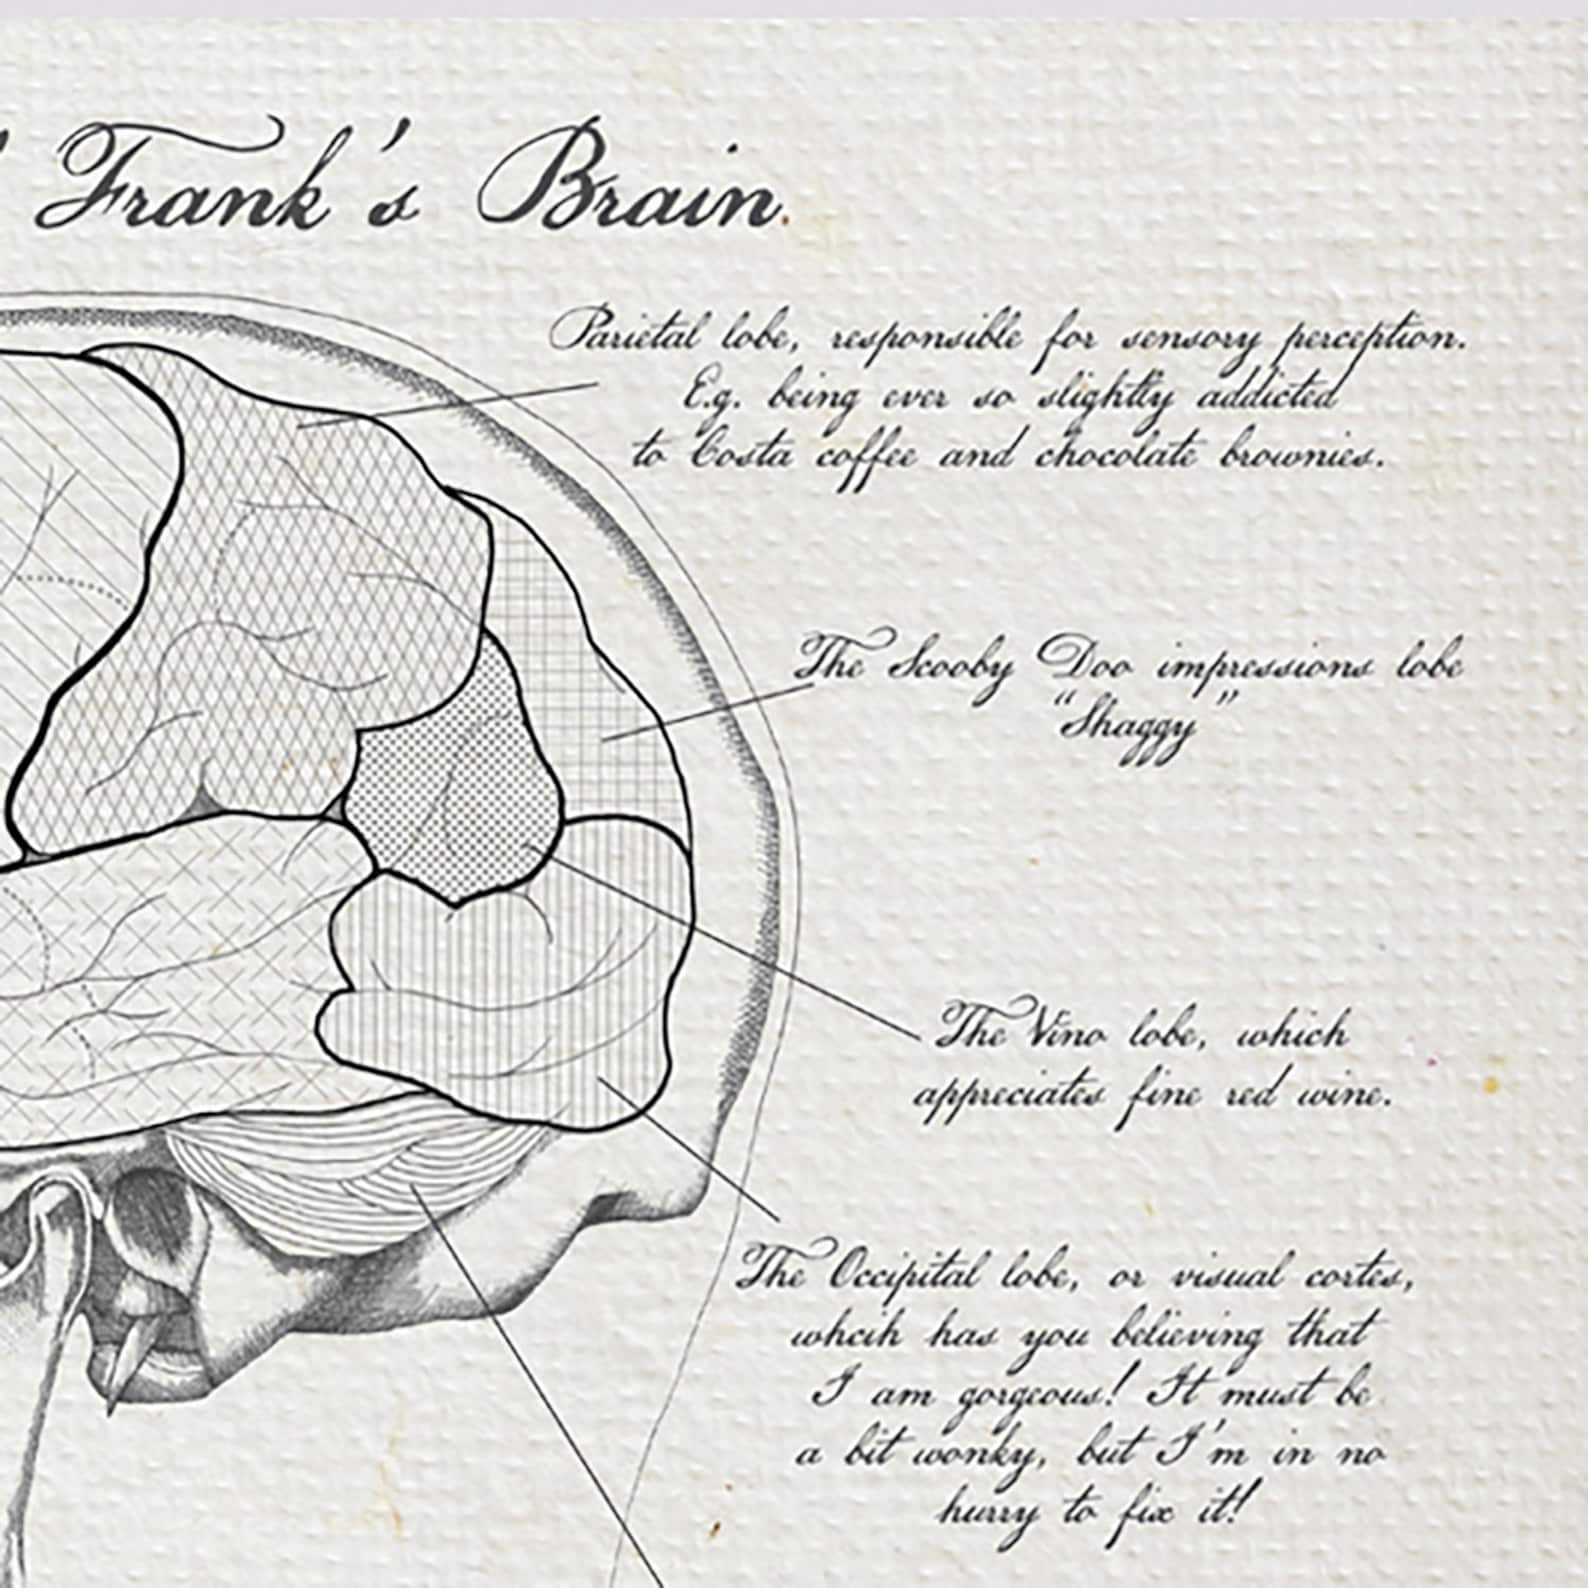 Frank's Brain.
Parietal lobe, responsible for sensory perception.
E.g. being ever so slightly addicted
to Costa coffee and chocolate brownies.
The Scooby Doo impressions lobe
"Shaggy"
The Vino lobe, which
appreciates fine red wine.
The Occipital lobe, or visual cortes,
whcih has you believing that
I am gorgeous! It must be
a bit wonky, but I'm in no
hurry to fix it!